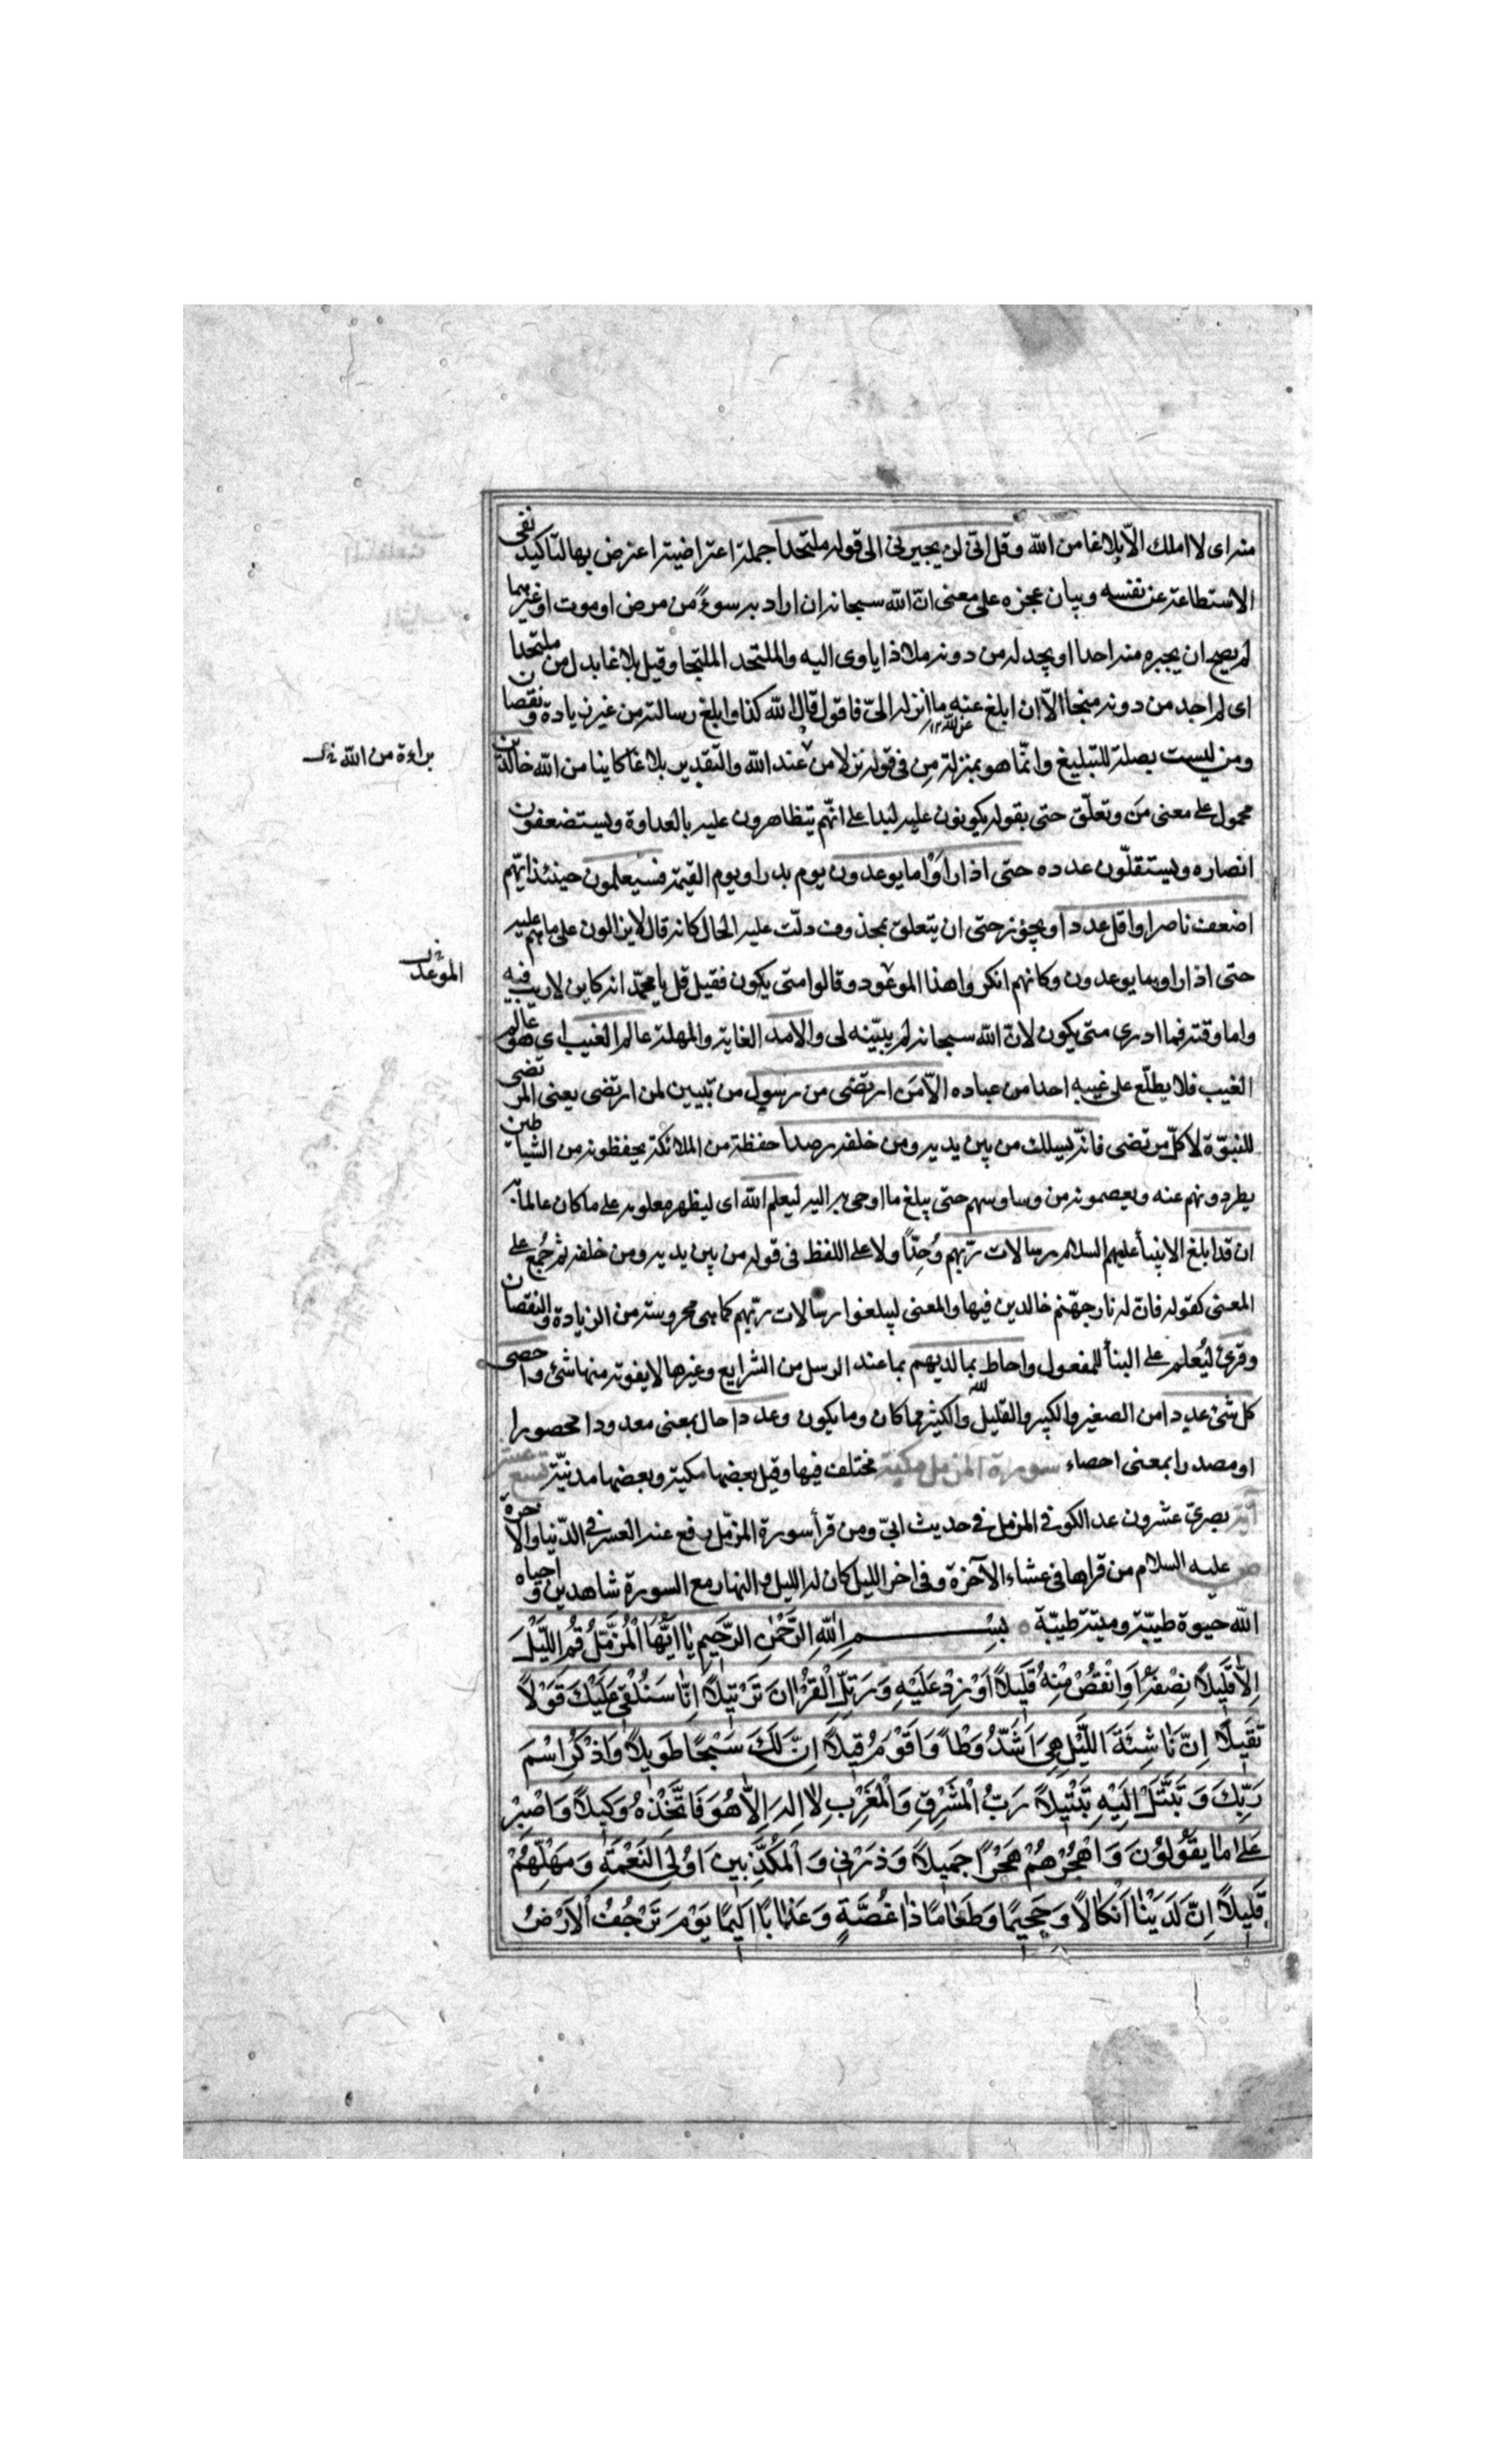 منه اى لا املك الّا بلاغا من الله وقل انّى لن يجيرنى الى قوله ملتحدا جملة اعتراضية اعترض بها لتاكيد نفى
الاستطاعة عن نفسه وبيان عجزه على معنى انّ الله سبحانه ان اراد به سوءً من مرض او موت او غيرهما
لم يصح ان يجيره منه احدا او يجد له من دونه ملاذا ياوى اليه والملتحد الملتجا وقيل بلاغا بدل من ملتحدا
اى لم اجد من دونه منجا الّا ان ابلغ عنه ما انزله الىّ فاقول قال الله كذا وابلغ رسالته من غير زيادة ونقصان
ومن ليست بصلة للتبليغ وانّما هو بمنزلة من فى قوله نزلا من عند الله والتقدير بلاغا كاينا من الله خالدين
براءة من الله
محمول على معنى من وتعلّق حتى بقوله يكونون عليه لبدا على انّهم يتظاهرون عليه بالعداوة ويستضعفون
انصاره ويستقلّون عدده حتى اذا راوْا ما يوعدون يوم بدر او يوم القيمة فسيعلمون حينئذ ايّهم
اضعف ناصرا واقل عددا ويجوز حتى ان يتعلق بمحذوف دلّت عليه الحال كانه قال لا يزالون على ما هم عليه
حتى اذا راوا ما يوعدون وكانهم انكروا هذا الموعود وقالوا متى يكون فقيل قل يا محمّد انه كاين لا ريب فيه
واما وقته فما ادرى متى يكون لانّ الله سبحانه لم يبيّنه لى والامد الغاية والمهلة عالم الغيب اى هو عالم
الغيب فلا يطلّع على غيبه احدا من عباده الّا مَن ارتضى من رسول من تبيين لمن ارتضى يعنى المرتضى
للنبوّة لا كلّ مرتضى فانّه يسلك من بين يديه ومن خلفه رصدا حفظة من الملائكة يحفظونه من الشياطين
يطردونهم عنه ويعصمونه من وساوسهم حتى يبلغ ما اوحى به اليه ليعلم الله اى ليظهر معلومه على ما كان عالما به
ان قد ابلغ الانبيأ عليهم السلام رسالات ربّهم وُحِّد اولا على اللفظ فى قوله من بين يديه ومن خلفه ثم جُمع على
المعنى كقوله فانّ له نار جهّنم خالدين فيها والمعنى ليبلغوا رسالات ربّهم كما هى محروسة من الزيادة والنقصان
وقرئ ليُعلم على البنأ للمفعول واحاط بما لديهم بما عند الرسل من الشرايع وغيرها لا يفوته منها شئ واحصى
كل شئ عددا من الصغير والكبير والقليل والكثير مما كان وما يكون وعددا حال بمعنى معدودا محصورا
او مصدر بمعنى احصاء سورة المزمل مكية مختلف فيها وقيل بعضها مكية وبعضها مدنيّة تسع عشر
آية بصرىّ عشرون عد الكوفى المزمل فى حديث ابىّ ومن قرأ سورة المزّمّل رفع عنه العسر فى الدّنيا والاخرة
ص عليه السلام من قراها فى عشاء الآخرة وفى اخر الليل كان له الليل والنهار مع السورة شاهدين واحياه
الله حيوة طيّبة وميتة طيّبة بِسْمِ اللهِ الرَّحْمٰنِ الرَّحِيمِ يٰا اَيُّهَا الْمُزَّمِّلُ قُمِ اللَّيْلَ
اِلّٰا قَلِيلًا نِصْفَهُ اَوِ انْقُصْ مِنْهُ قَلِيلًا اَوْ زِدْ عَلَيْهِ وَرَتِّلِ الْقُرْاٰنَ تَرْتِيلًا اِنّٰا سَنُلْقِى عَلَيْكَ قَوْلًا
ثَقِيلًا اِنَّ نٰاشِئَةَ اللَّيْلِ هِىَ اَشَدُّ وَطْاً وَاَقْوَمُ قِيلًا اِنَّ لَكَ سَبْحًا طَوِيلًا وَاذْكُرِ اسْمَ
رَبِّكَ وَتَبَتَّلْ اِلَيْهِ تَبْتِيلًا رَبُّ الْمَشْرِقِ وَالْمَغْرِبِ لٰا اِلٰهَ اِلّٰا هُوَ فَاتَّخِذْهُ وَكِيلًا وَاصْبِرْ
عَلىٰ مٰا يَقُولُونَ وَاهْجُرْهُمْ هَجْرًا جَمِيلًا وَذَرْنِى وَالْمُكَذِّبِينَ اُولِى النَّعْمَةِ وَمَهِّلْهُمْ
قَلِيلًا اِنَّ لَدَيْنٰا اَنْكٰالًا وَجَحِيمًا وَطَعٰامًا ذٰا غُصَّةٍ وَعَذٰابًا اَلِيمًا يَوْمَ تَرْجُفُ الْاَرْضُ